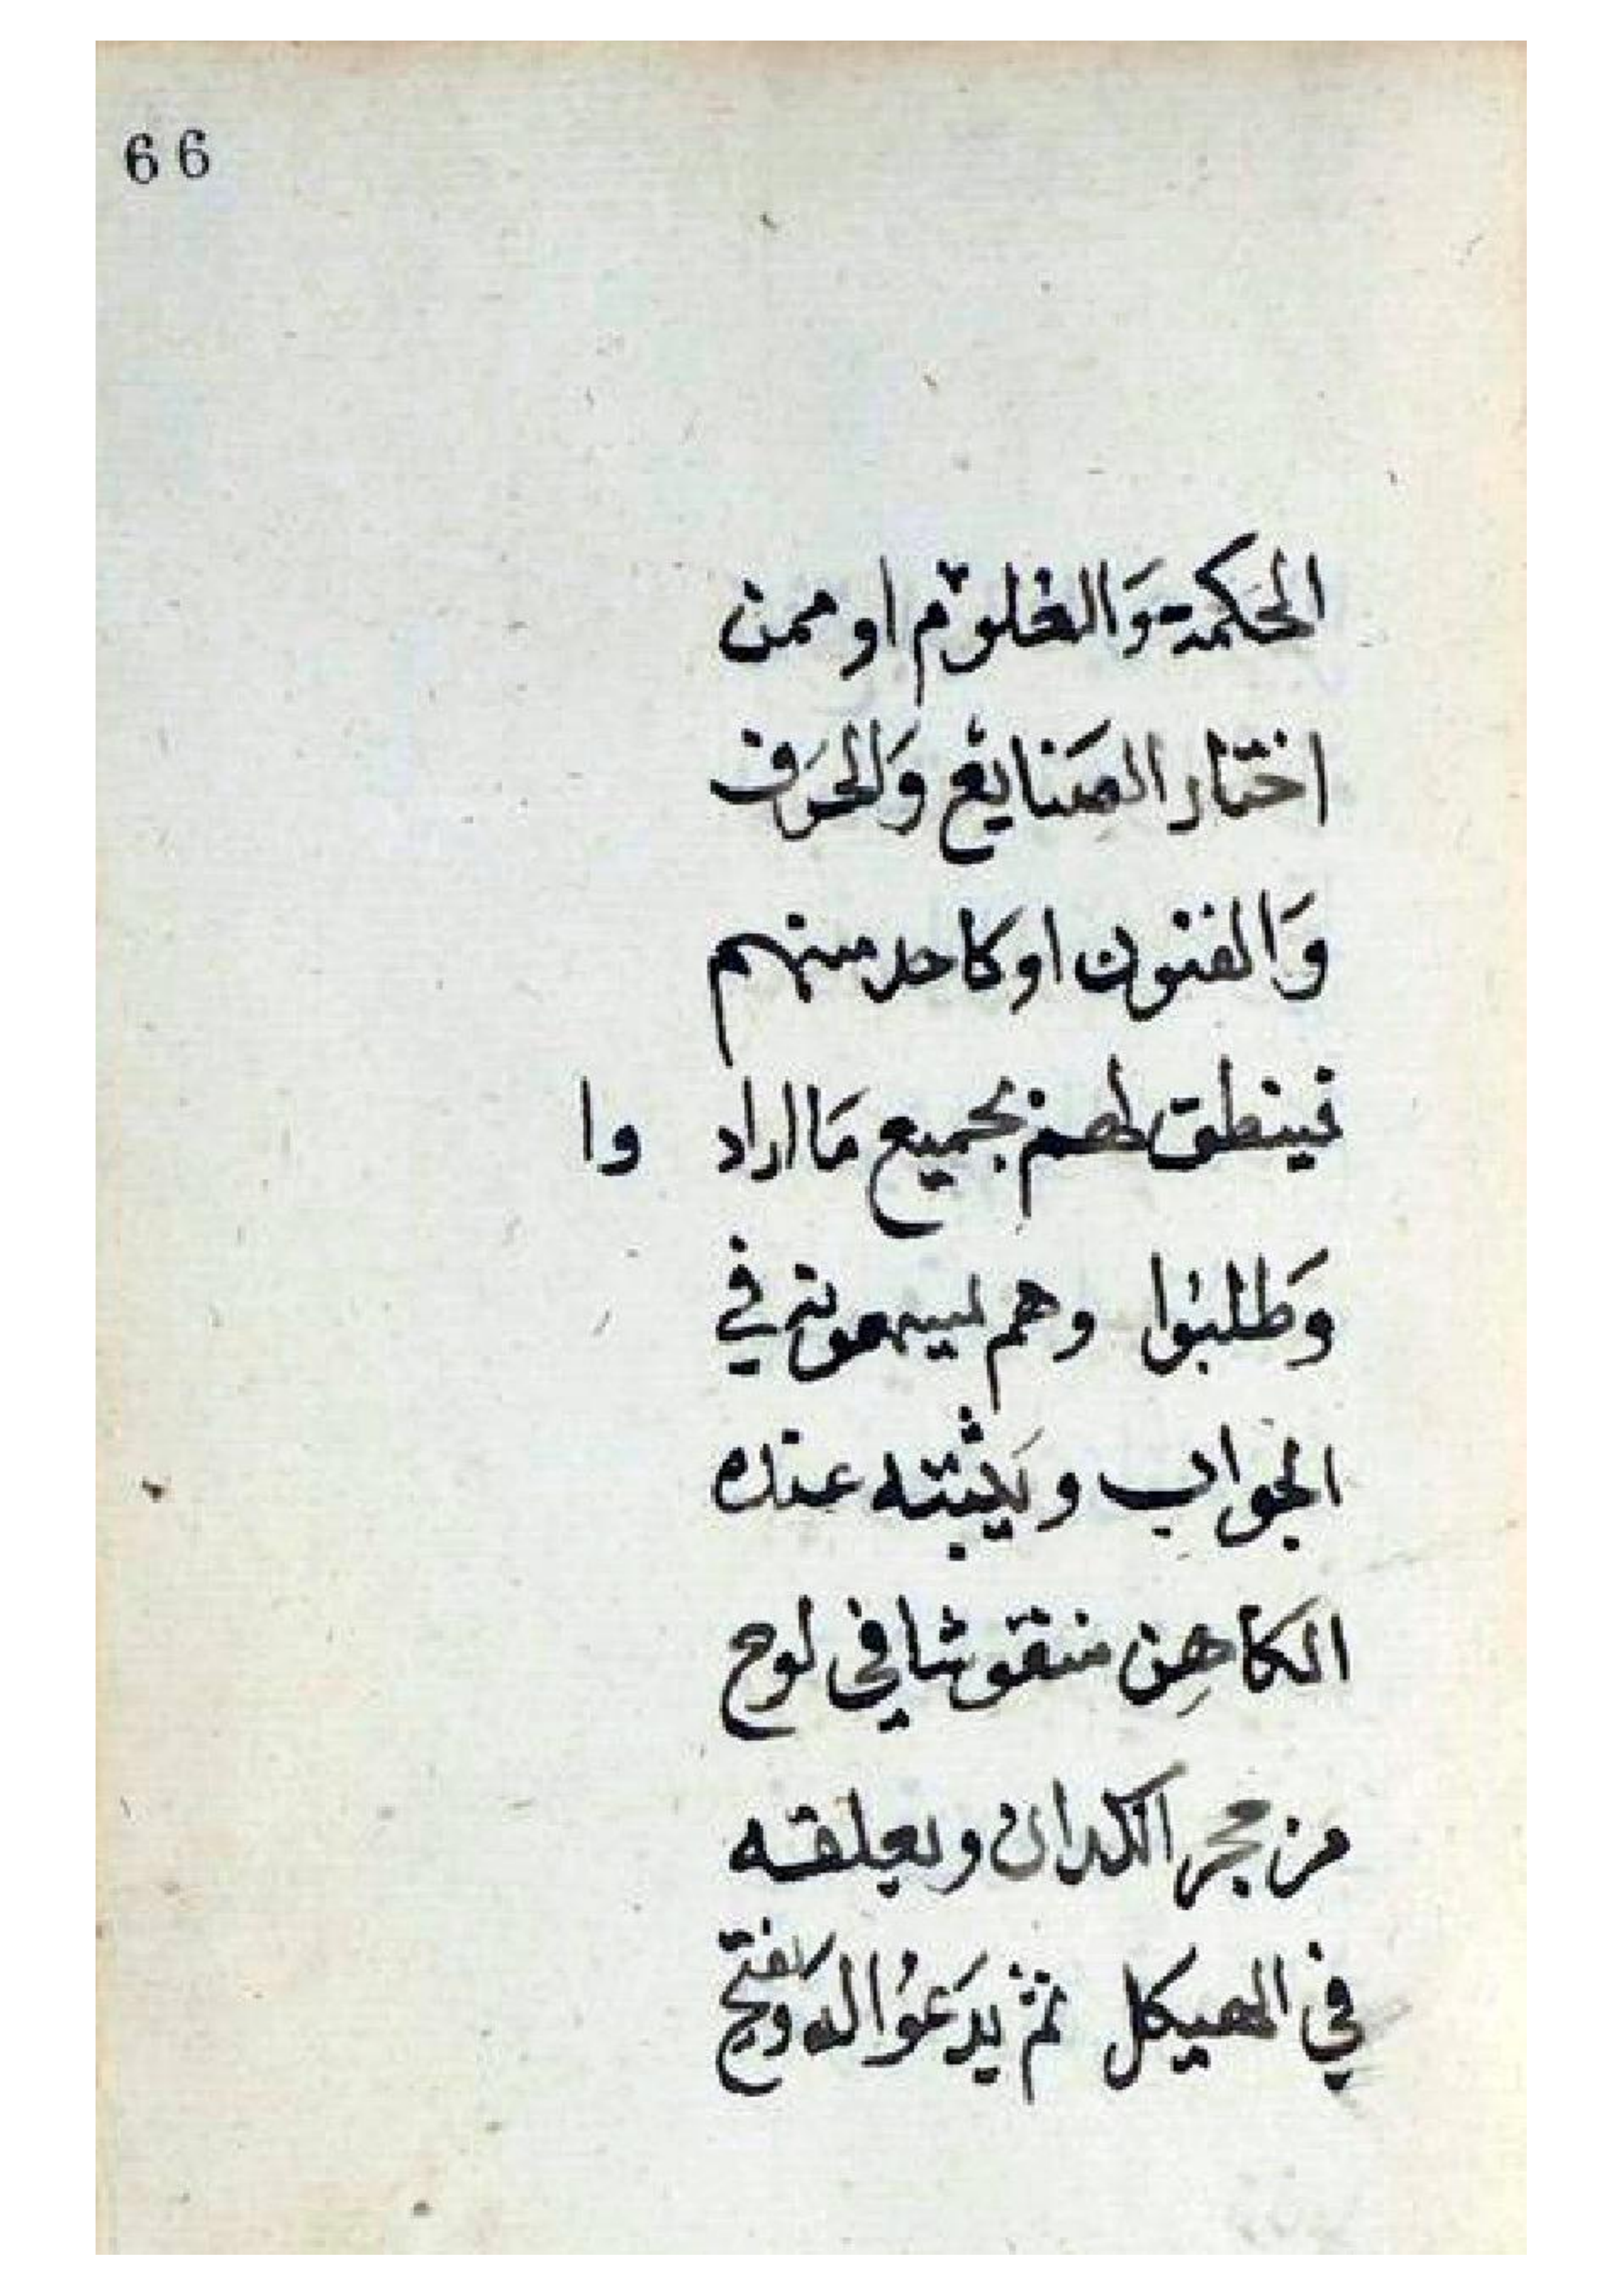 66
الحكمة وَالعلوم او ممن
اختار الصَنايع وَالحرَف
وَالفنون او كاحد منهم
فينطق لهم بجميع مَا اراد وا
وَطلبوا وهم في
الجواب ويَثبته عنده
الكاهِن منقوشا في لوح
من حجر الكدان ويعلقه
في الهيكل ثم يدَعوا له وَيفتح